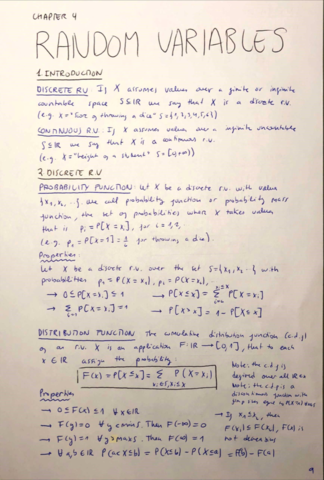 CHAPTER 4
RANDOM VARIABLES
1. INTRODUCTION
DISCRETE R.V: If X assumes values over a finite or infinite
countable space S⊆ℝ we say that X is a discrete r.v.
(e.g. X="Score of throwing a dice" S={1,2,3,4,5,6})
CONTINUOUS R.V: If X assumes values over a infinite uncountable
S⊆ℝ we say that X is a continuous r.v.
(e.g. X="height of a student" S=[0,+∞))
2. DISCRETE R.V
PROBABILITY FUNCTION: Let X be a discrete r.v. with value
{x₁,x₂,...} we call probability function or probability mass
function, the set of probabilities where X takes values
that is p_i=P[X=x_i], for i=1,2,..
(e.g. p₁=P[X=1]=1/6 for throwing a die).
Properties:
Let X be a discrete r.v. over the set S={x₁,x₂,..} with
probabilities p₁=P(X=x₁), p₂=P(X=x₂),...
→ 0≤P[X=x_i]≤1 → P[X≤x]=∑ P[X=x_i]
→ ∑ P[X=x_i]=1 → P[X>x]=1-P[X≤x]
DISTRIBUTION FUNCTION: The cumulative distribution function (c.d.f)
of an r.v. X is an application F:ℝ→[0,1], that to each
x∈ℝ assign the probability:
F(x)=P[X≤x]=∑ P(X=x_i)
Note: the c.d.f is
defined over all ℝ
Note: the c.d.f is a
discontinuous function with
jump size
Properties
→ 0≤F(x)≤1 ∀x∈ℝ
→ F(y)=0 ∀y<min S. Then F(-∞)=0
→ F(y)=1 ∀y≥max S. Then F(∞)=1
→ ∀a,b∈ℝ P(a<X≤b)=P(X≤b)-P(X≤a)=F(b)-F(a)
→ If x₁≤x₂, then
F(x₁)≤F(x₂), F(x) is
not decreasing